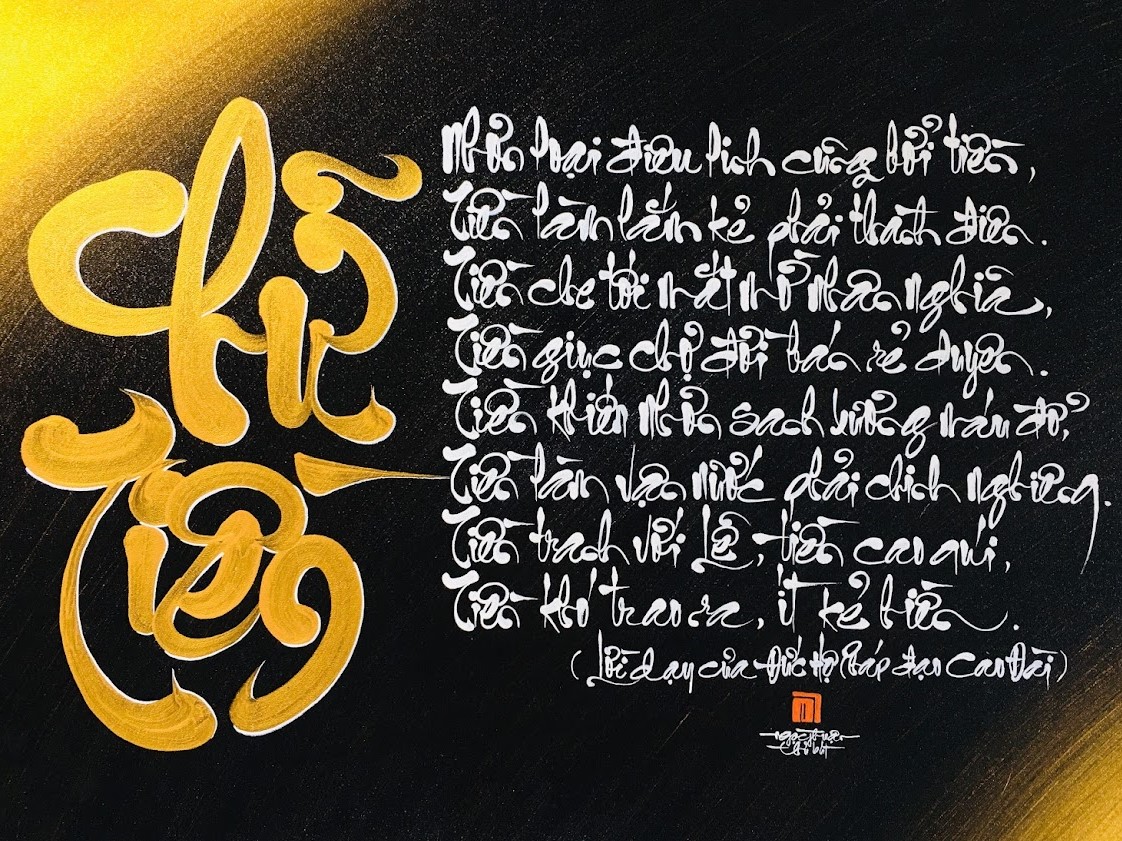 Chữ
Tiền
Nhơn loại điêu linh cũng bởi tiền,
Tiền làm lắm kẻ phải thành điên.
Tiền che tối mắt mờ nhân nghĩa,
Tiền giục chợ đời bán rẻ duyên.
Tiền khiến nhơn sanh luống máu đổ,
Tiền làm vạn nước phải chinh nghiêng.
Tiền tranh với Lễ, tiền cao quí,
Tiền khó trao ra, ít kẻ hiền.
(Lời dạy của Đức Hộ Pháp đạo Cao Đài)